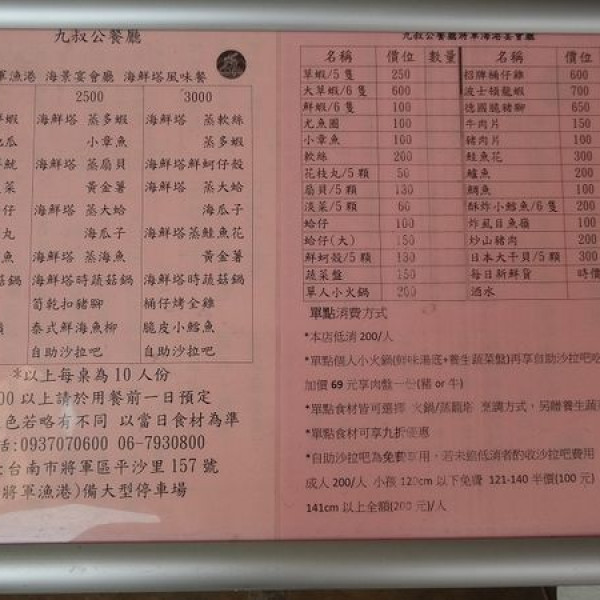 九叔公餐廳
軍漁港 海景宴會廳 海鮮塔風味餐
2500 3000
蝦 海鮮塔 蒸多蝦 海鮮塔 蒸軟絲
地瓜 小章魚 蒸多蝦
魷 海鮮塔 蒸扇貝 海鮮塔鮮蚵仔殼
菜 黃金薯 海鮮塔 蒸大蛤
仔 海鮮塔 蒸大蛤 海瓜子
丸 海瓜子 海鮮塔蒸鮭魚花
海鮮塔 蒸海燕窩 黃金薯
鍋 海鮮塔時蔬菇鍋 海鮮塔時蔬菇鍋
筍乾扣豬腳 桶仔烤全雞
泰式鮮海魚柳 脆皮小鱈魚
自助沙拉吧 自助沙拉吧
*以上每桌為 10 人份
00 以上請於用餐前一日預定
色若略有不同 以當日食材為準
話:0937070600 06-7930800
台南市將軍區平沙里 157 號
將軍漁港)備大型停車場
九叔公餐廳將軍海港宴會廳
名稱 價位 數量 名稱 價位
草蝦/5 隻 250 招牌桶仔雞 600
大草蝦/6 隻 600 波士頓龍蝦 700
鮮蝦/6 隻 100 德國脆豬腳 650
尤魚圈 100 牛肉片 150
小章魚 100 豬肉片 100
軟絲 200 鮭魚花 300
花枝丸/5 顆 50 鱸魚 200
扇貝/5 顆 130 鯛魚 100
淡菜/5 顆 60 酥炸小鱈魚/6 隻 200
蛤仔 100 炸風目魚嶺 100
蛤仔(大) 150 炒山豬肉 200
鮮蚵殼/5 顆 130 日本大干貝/5 顆 300
蔬菜盤 150 每日新鮮貨 時價
單人小火鍋 200 酒水
單點消費方式
*本店低消 200/人
*單點個人小火鍋(鮮味湯底+養生蔬菜盤)再享自助沙拉吧吃
加價 69 元享肉盤一份(豬 or 牛)
*單點食材皆可選擇 火鍋/蒸籠塔 烹調方式,另贈養生蔬
*單點食材可享九折優惠
*自助沙拉吧為免費享用,若未飽低消者酌收沙拉吧費用
成人 200/人 小孩 120cm 以下免費 121-140 半價(100 元)
141cm 以上全額(200 元)/人